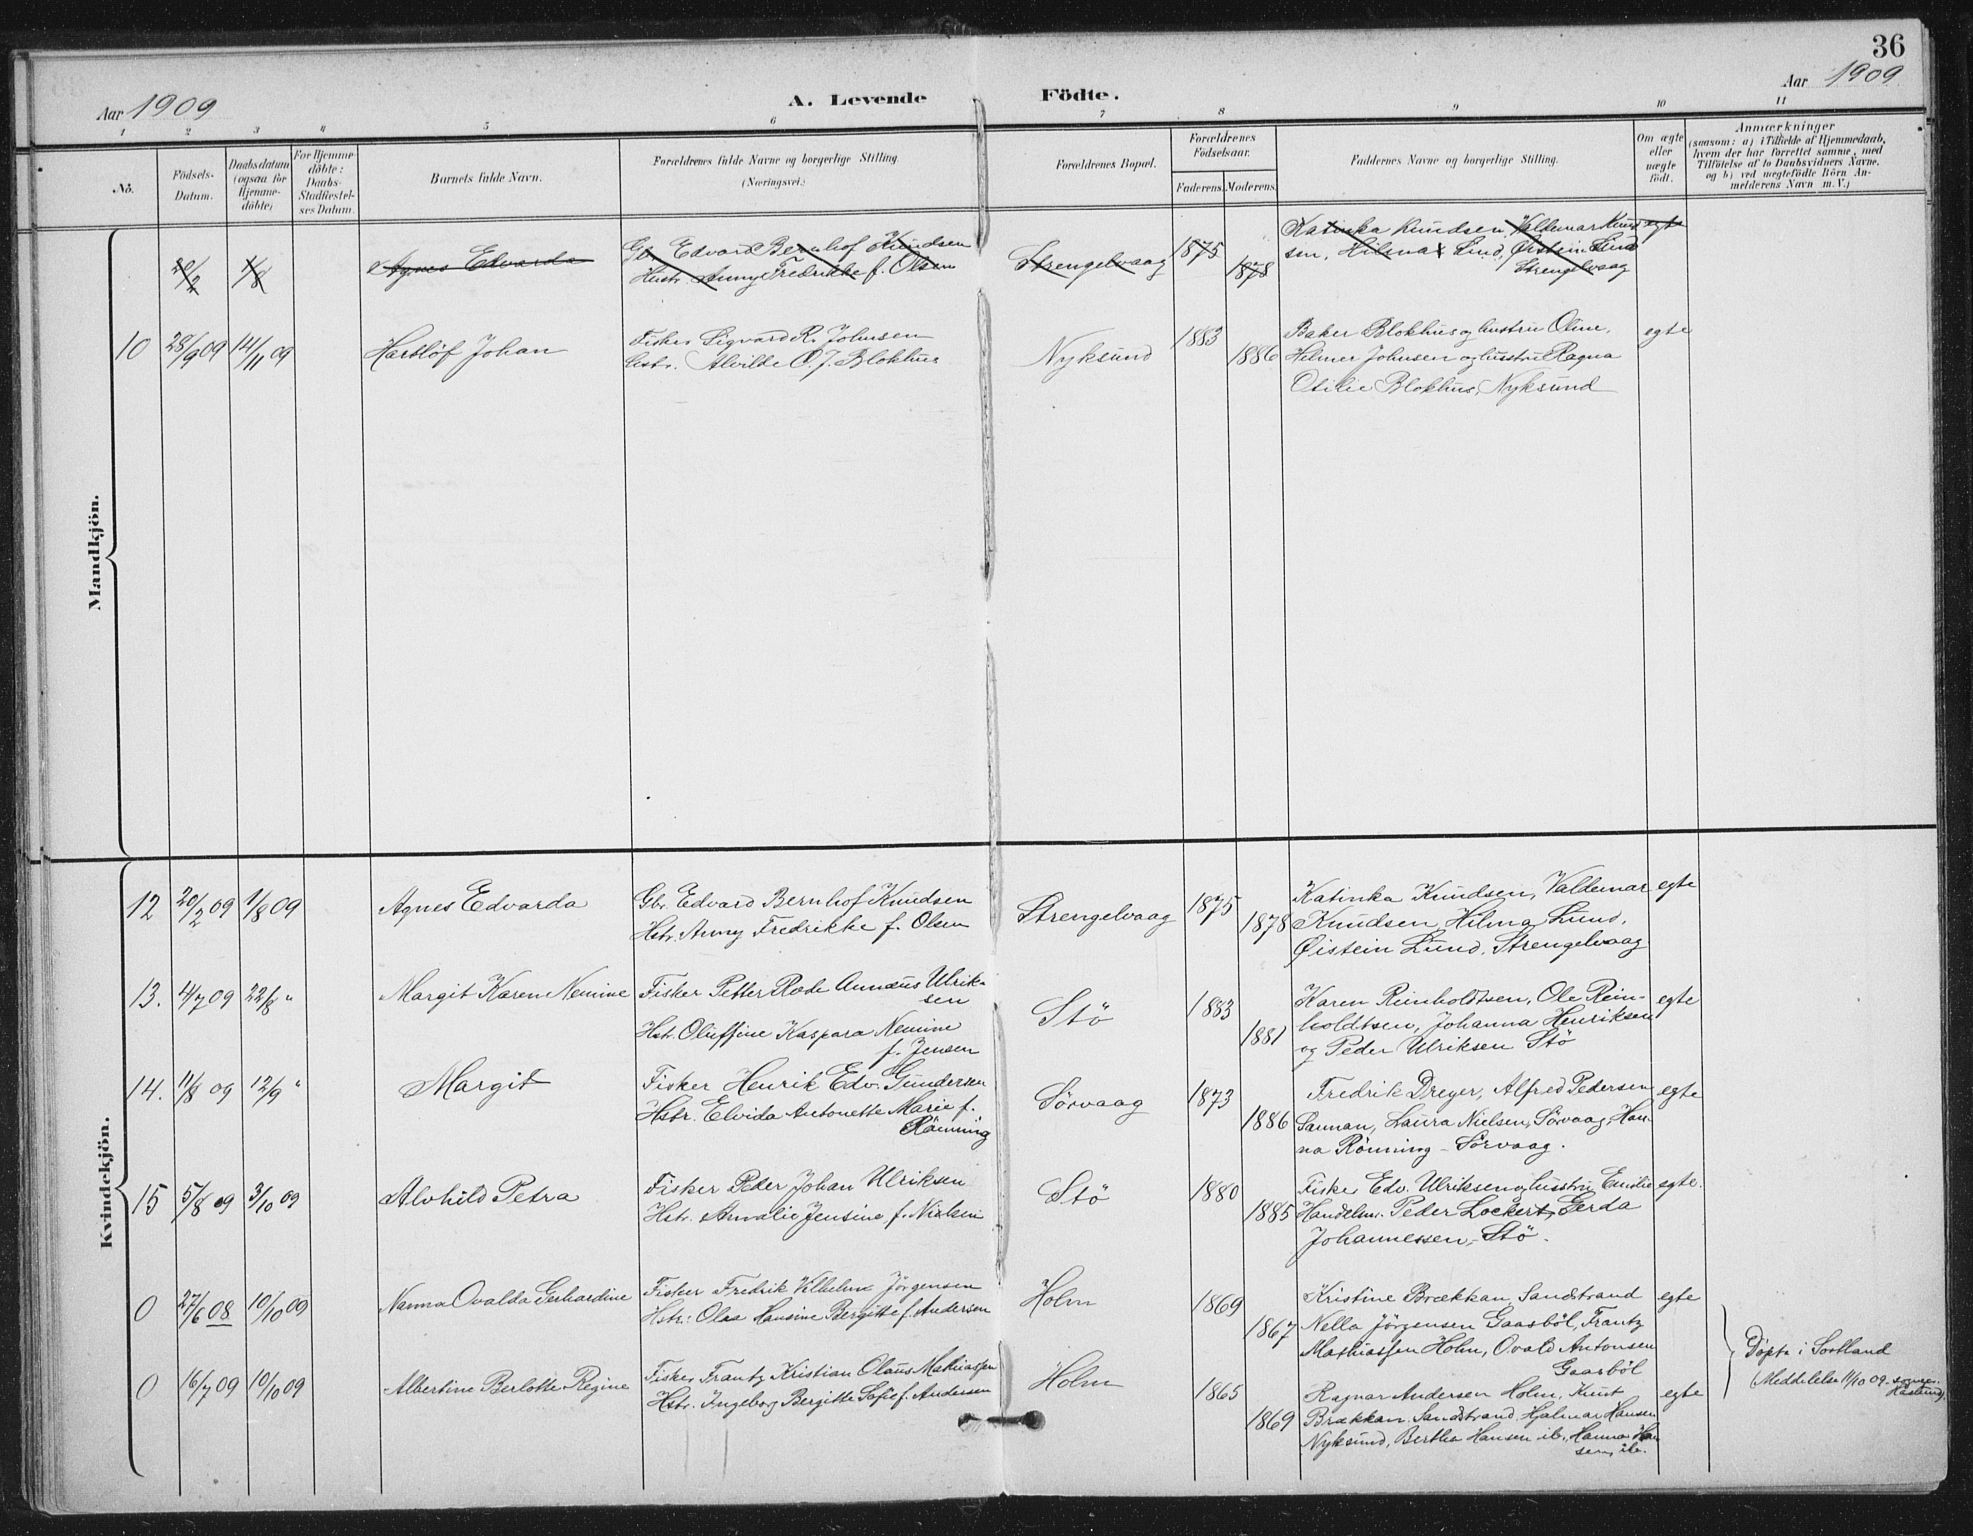 36
Aar 1909
A. Levende Födte.
Aar 1909
1 2 3 4 5 6 7 8 9 10 11
No.
Födsels-
Datum.
Daabsdatum
(ogsaa for
Hjemme-
döbte)
For Hjemme-
döbte:
Daabs-
Stadfæstel-
ses Datum.
Barnets fulde Navn.
Forældrenes fulde Navne og borgerlige Stilling.
(Næringsvei.)
Forældrenes Bopæl.
Forældrenes
Födselsaar.
Faderens. Moderens.
Faddernes Navne og borgerlige Stilling.
Om ægte
eller
uægte
födt.
Anmærkninger
(saasom: a) i Tilfælde af Hjemmedaab,
hvem der har forrettet samme, med
Tilföielse af to Daabsvidners Navne,
og b) ved uægtefödte Börn An-
melderens Navn m. V.)
Mandkjön.
20/2 1/8 Agnes Edvarda
Gbr. Edvard Bernhof Knudsen
Hustr. Anny Fredrikke f. Olsen
Strengelvaag 1875
1878
Katinka Knudsen, Valdemar Knud-
sen, Hilma Lund, Øistein Lund
Strengelvaag
egte
10 28/9 09 14/11 09 Hartlöf Johan
Fisker Sigvard R. Johnsen
Hstr. Alvilde O. J. Blokhus
Nyksund 1883
1886
Baker Blokhus og hustru Oline,
Helmer Johnsen og hustru Ragna
Otilie Blokhus, Nyksund
egte
Kvindekjön.
12 20/2 09 1/8 09 Agnes Edvarda
Gbr. Edvard Bernhof Knudsen
Hstr. Anny Fredrikke f. Olsen
Strengelvaag 1875
1878
Katinka Knudsen, Valdemar
Knudsen, Hilma Lund,
Øistein Lund, Strengelvaag
egte
13. 4/7 09 22/8 " Margit Karen Nemine
Fisker Petter Rode Annæus Ulrik-
sen
Hstr. Oluffine Kaspara Nemine
f. Jensen
Stö 1883
1881
Karen Reinholdtsen, Ole Rein-
holdtsen, Johanna Henriksen
og Peder Ulriksen Stö
egte
14. 11/8 09 12/9 " Margit
Fisker Henrik Edv. Gundersen
Hstr. Elvida Antonette Marie f.
Rönning
Sörvaag 1873
1886
Fredrik Dreyer, Alfred Pedersen
Sannan, Laura Nielsen, Sörvaag, Han-
na Rönning - Sörvaag.
egte
15 5/8 09 3/10 09 Alvhild Petra
Fisker Peder Johan Ulriksen
Hstr. Amalie Jensine f. Nielsen
Stö 1880
1885
Fisker Edv. Ulriksen og hustru Emilie
Handelsm. Peder Lockert, Gerda
Johannessen, - Stö.
egte.
0 27/6 08 10/10 09 Nanna Ovalda Gerhardine
Fisker Fredrik Vilhelm Jörgensen
Hstr: Olaa Hansine Bergitte f. Andersen
Holm 1869
1867
Kristine Brækkan, Sandstrand
Nella Jörgensen Gaasböl, Frantz
Mathiassen Holm, Ovald Antonsen
Gaasböl
egte
0 16/7 09 10/10 09 Albertine Berlotte Regine
Fisker Frantz Kristian Olaus Mathiassen
Hstr. Ingeborg Bergitte Sofie f. Andersen
Holm 1865
1869
Ragnar Andersen Holm, Knut
Brækkan Sandstrand, Hjalmar Hansen
Nyksund, Bertha Hansen ib., Hanna Han
sen, ib.
egte
Döpte i Sortland
(Meddelelse 11/10 09